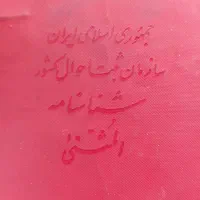 جمهوری اسلامی ایران
سازمان ثبت احوال کشور
شناسنامه
المثنی